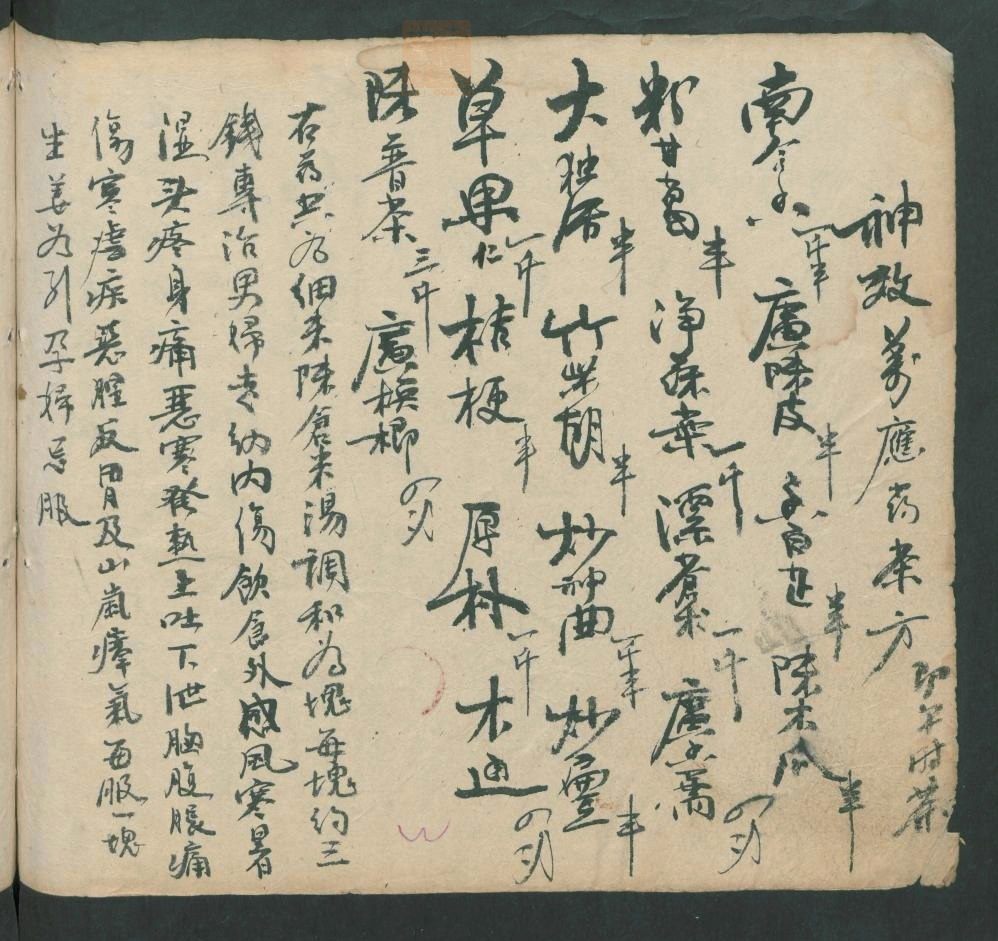 神效萬應药茶方 即午时茶
南查肉 一斤半 廣陳皮 半斤 香白芷 半斤 陳木瓜 半斤
粉甘葛 半斤 淨蘇葉 一斤 漂蒼术 一斤 廣香薷 四刃
大独活 半斤 竹柴胡 半斤 炒神曲 一斤半 炒 半斤
草果仁 一斤 桔梗 半斤 厚朴 一斤 木通 四刃
陳普茶 三斤 廣檳榔 四刃
右药共为细末陳倉米湯調和為塊每塊約三
錢專治男婦老幼内傷飲食外感風寒暑
濕头疼身痛惡寒發热上吐下泄胸腹脹痛
傷寒瘧疾惡腥反胃及山嵐瘴氣每服一塊
生姜为引孕婦忌服